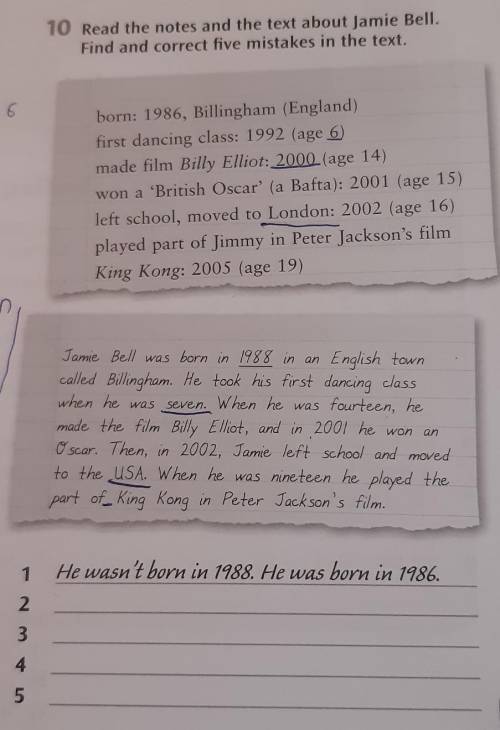 10 Read the notes and the text about Jamie Bell.
Find and correct five mistakes in the text.
6
born: 1986, Billingham (England)
first dancing class: 1992 (age 6)
made film Billy Elliot: 2000 (age 14)
won a ‘British Oscar’ (a Bafta): 2001 (age 15)
left school, moved to London: 2002 (age 16)
played part of Jimmy in Peter Jackson’s film
King Kong: 2005 (age 19)
Jamie Bell was born in 1988 in an English town
called Billingham. He took his first dancing class
when he was seven. When he was fourteen, he
made the film Billy Elliot, and in 2001 he won an
Oscar. Then, in 2002, Jamie left school and moved
to the USA. When he was nineteen he played the
part of King Kong in Peter Jackson's film.
1 He wasn't born in 1988. He was born in 1986.
2
3
4
5